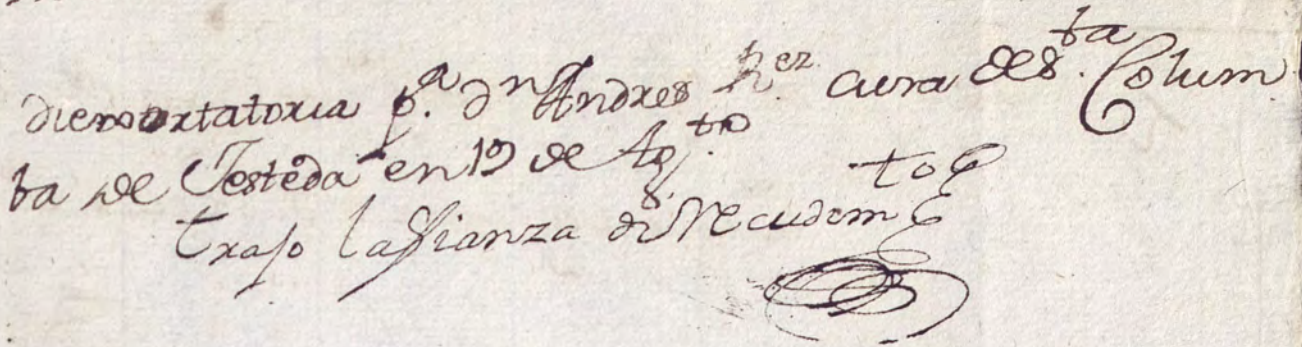 diemortatoria p.ª dn Andres Rez cura de s.ta Colum
ba de Testeda en 19 de Ag.to
trajo la ffianza de Recudemto